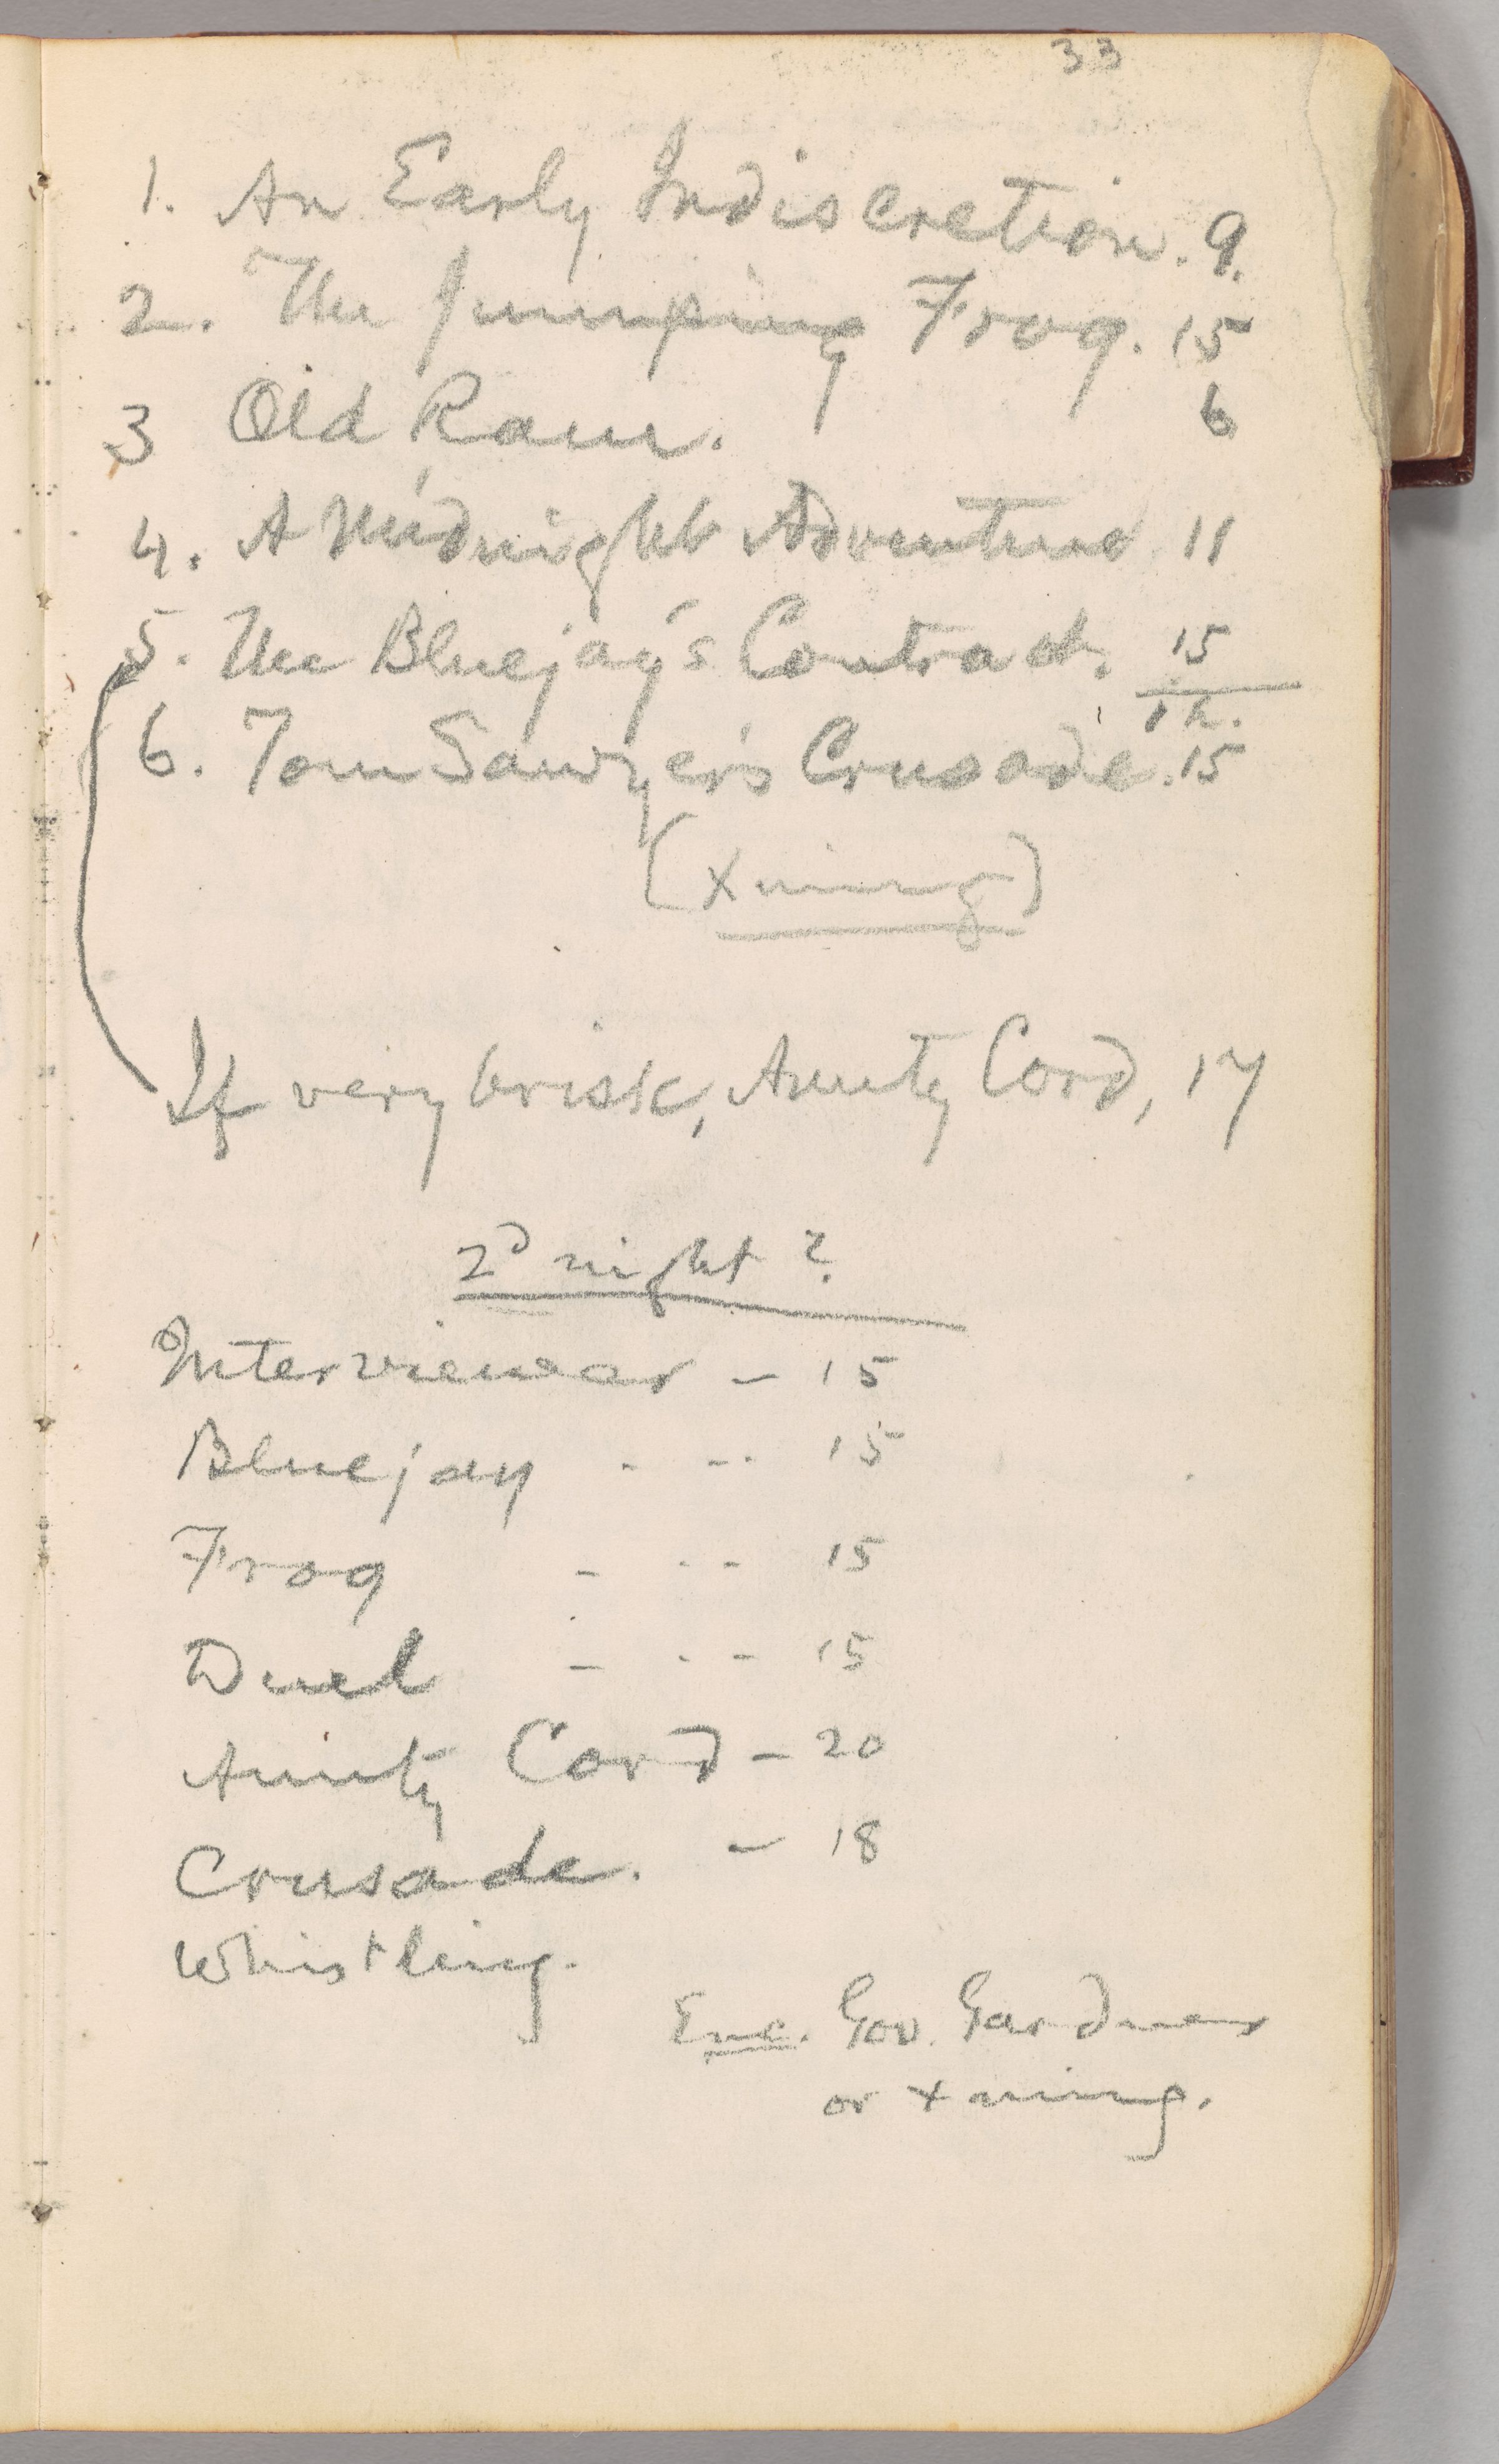 33
1. An Early Indiscretion. 9.
2. The Jumping Frog. 15
3 Old Ram. 6
4. A Midnight Adventure 11
5. The Bluejay's Contract. 15
1 h.
6. Tom Sawyer's Crusade. 15
(Xning)
If very brisk, Aunty Cord, 17
2d night?
Interviewer – 15
Bluejay - -- 15
Frog - -- 15
Duel - -- 15
Aunty Cord – 20
Crusade. – 18
Whistling.
Enc. Gov. Gardiner
or Xning.